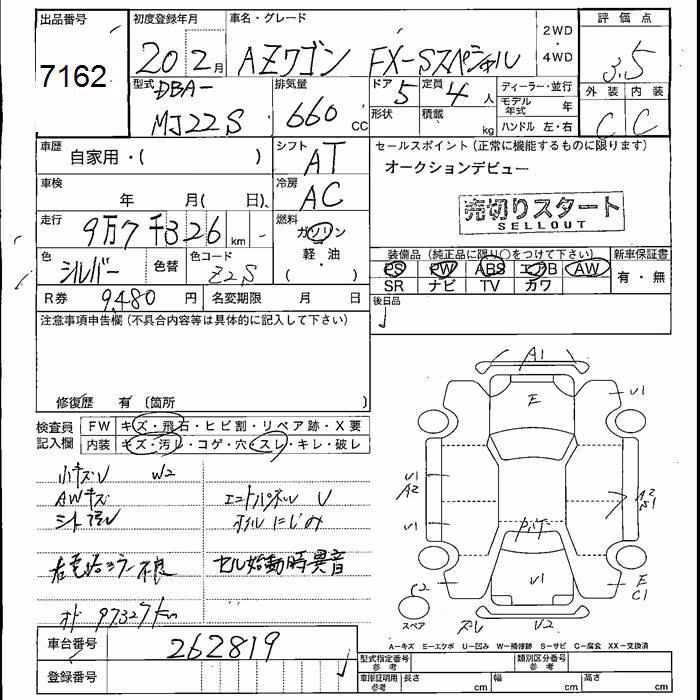 出品番号
7162
初度登録年月
20 2月
車名・グレード
AZワゴン FX-Sスペシャル
2WD・4WD
評価点
3.5
外装 内装
C C
型式
DBA-
MJ22S
排気量
660 CC
ドア 5
形状
定員 4人
積載 kg
ディーラー・並行
モデル年式 年
ハンドル 左・右
車歴
自家用・( )
シフト
AT
車検
年 月( 日)
冷房
AC
走行
9万7千326 km
燃料
ガソリン
軽・油
( )
色
シルバー
色替
色コード
Z2S
R券 9480円
名変期限 月 日
セールスポイント(正常に機能するものに限ります)
オークションデビュー
売切りスタート
SELLOUT
装備品(純正品に限り○をつけて下さい)
PS PW ABS エアB AW
SR ナビ TV カワ
新車保証書
有・無
後日品
注意事項申告欄(不具合内容等は具体的に記入して下さい)
修復歴 有 〔箇所 〕
検査員記入欄
FW キズ・飛石・ヒビ割・リペア跡・X要
内装 キズ・汚レ・コゲ・穴・スレ・キレ・破レ
小キズU W2
AWキズ
シート汚レ
右電格ミラー不良
オド 97327km
エンドパネル U
オイルにじみ
セル始動時異音
A1
E
U1
U1
A2
U1
A2
U1
E
C1
C2
スペア
U2
A-キズ E-エクボ U-凹み W-補修跡 S-サビ C-腐食 XX-交換済
車台番号
262819
登録番号
型式指定番号 参考
類別区分番号 参考
車庫証明用 参考
長さ cm
幅 cm
高さ cm